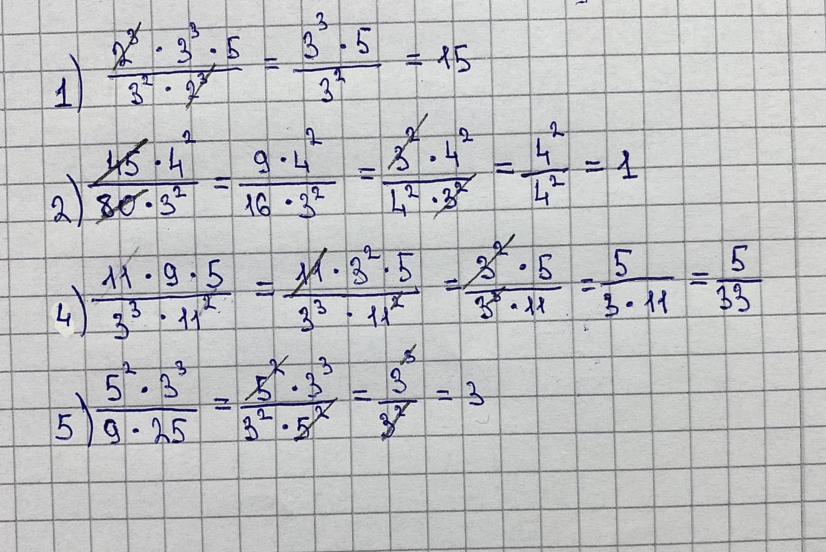 1) \frac{2^3 · 3^3 · 5}{3^2 · 2^3} = \frac{3^3 · 5}{3^2} = 15
2) \frac{45 · 4^2}{80 · 3^2} = \frac{9 · 4^2}{16 · 3^2} = \frac{3^2 · 4^2}{4^2 · 3^2} = \frac{4^2}{4^2} = 1
4) \frac{11 · 9 · 5}{3^3 · 11^2} = \frac{11 · 3^2 · 5}{3^3 · 11^2} = \frac{3^2 · 5}{3^3 · 11} = \frac{5}{3 · 11} = \frac{5}{33}
5) \frac{5^2 · 3^3}{9 · 25} = \frac{5^2 · 3^3}{3^2 · 5^2} = \frac{3^3}{3^2} = 3